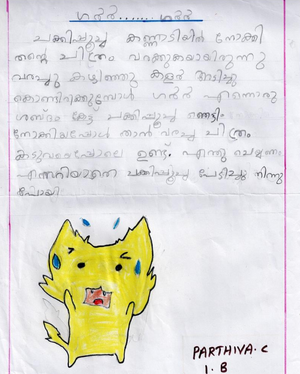 ഗർർ...... ഗർർ
ചക്കിപ്പൂച്ച കണ്ണാടിയിൽ നോക്കി
തന്റെ ചിത്രം വരക്കുകയായിരുന്നു
വരച്ചു കഴിഞ്ഞു കളർ അടിച്ചു
കൊണ്ടിരിക്കുമ്പോൾ ഗർർർ എന്നൊരു
ശബ്ദം കേട്ട് ചക്കിപ്പൂച്ച ഞെട്ടി.
നോക്കിയപ്പോൾ താൻ വരച്ച ചിത്രം
കടുവയെപ്പോലെ ഉണ്ട്. എന്തു ചെയ്യണം
എന്നറിയാതെ ചക്കിപ്പൂച്ച പേടിച്ചു നിന്നു
പോയി.
PARTHIVA.C
1.B